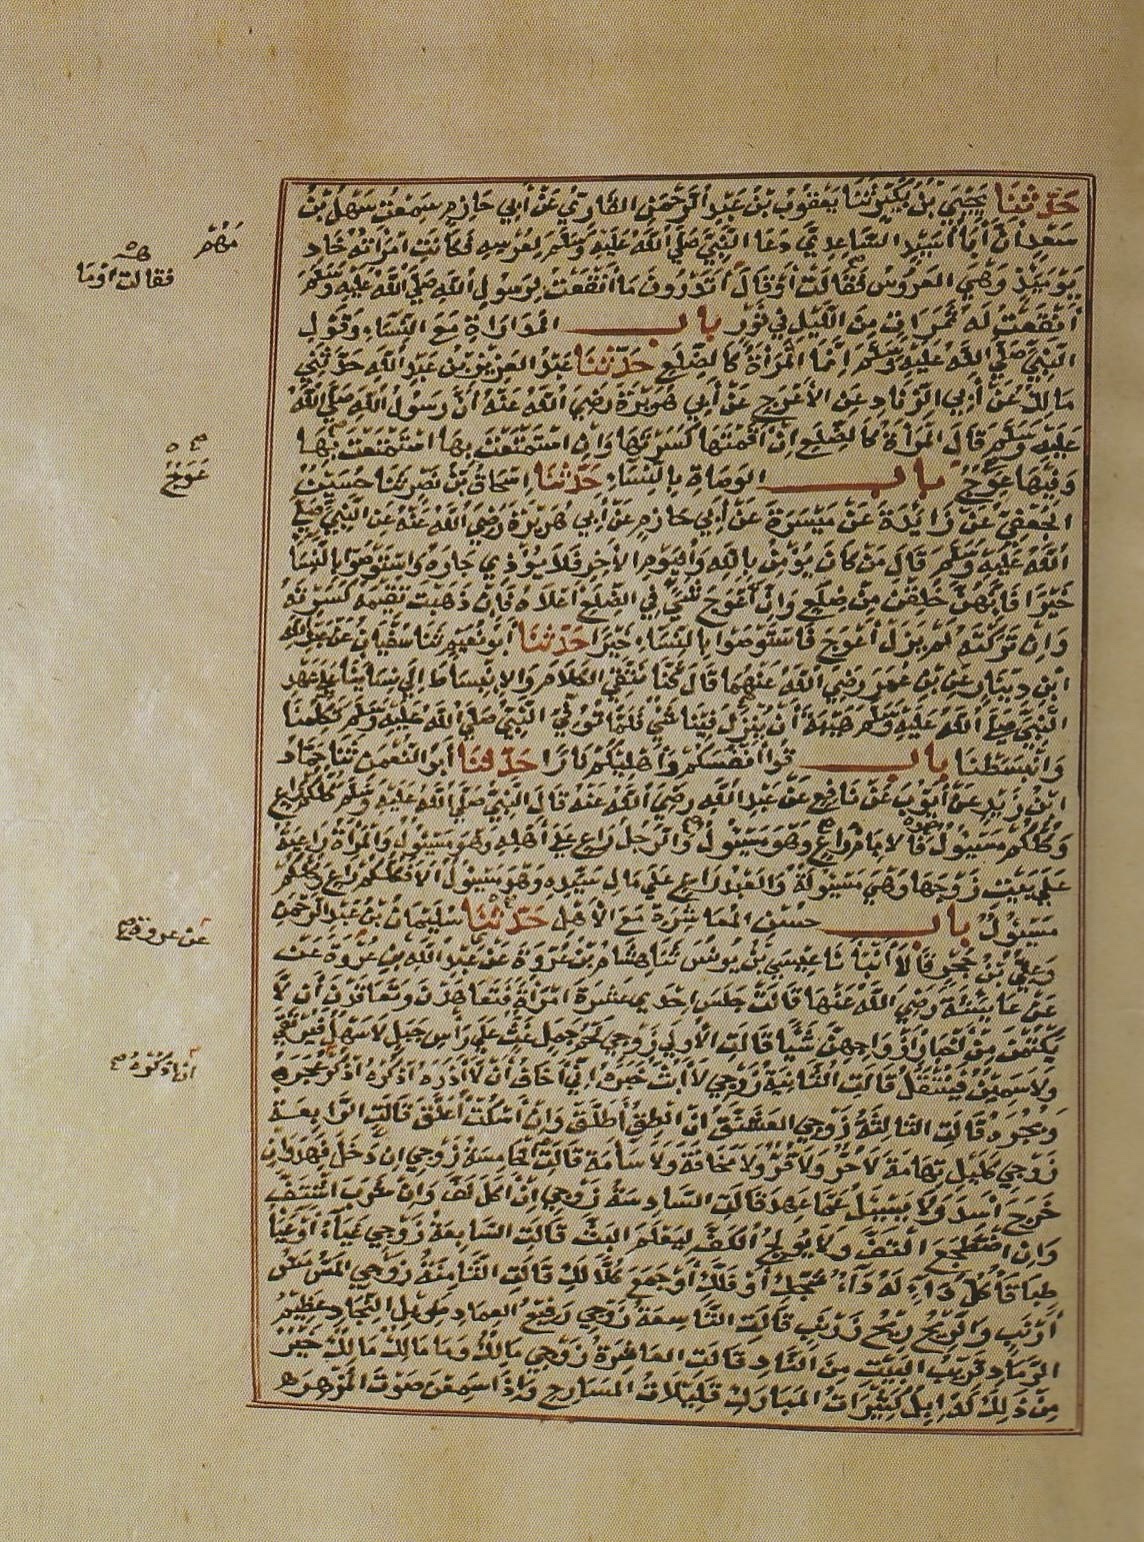 حدثنا يحيى بن بكير ثنا يعقوب بن عبد الرحمن القاري عن أبي حازم سمعت سهل بن
سعد أن أبا أسيد الساعدي دعا النبي صلى الله عليه وسلم لعرسه فكانت امرأته خاد
يومئذ وهي العروس فقالت أو قال أتدرون ما أنقعت لرسول الله صلى الله عليه وسلم
أنقعت له تمرات من الليل في تور باب المداراة مع النساء وقول
النبي صلى الله عليه وسلم إنما المرأة كالضلع حدثنا عبد العزيز بن عبد الله حدثني
مالك عن أبي الزناد عن الأعرج عن أبي هريرة رضي الله عنه أن رسول الله صلى الله
عليه وسلم قال المرأة كالضلع إن أقمتها كسرتها وإن استمتعت بها استمتعت بها
وفيها عوج باب الوصاة بالنساء حدثنا إسحاق بن نصر ثنا حسين
الجعفي عن زائدة عن ميسرة عن أبي حازم عن أبي هريرة رضي الله عنه عن النبي صلى
الله عليه وسلم قال من كان يؤمن بالله واليوم الآخر فلا يؤذي جاره واستوصوا بالنسا
خيرا فإنهن خلقن من ضلع وإن أعوج شيء في الضلع أعلاه فإن ذهبت تقيمه كسرته
وإن تركته لم يزل أعوج فاستوصوا بالنساء خيرا حدثنا أبو نعيم ثنا سفيان عن عبد الله
ابن دينار عن بن عمر رضي الله عنهما قال كنا نتقي الكلام والانبساط إلى نسائنا على عهد
النبي صلى الله عليه وسلم هيبة أن ينزل فينا شيء فلما توفي النبي صلى الله عليه وسلم تكلمنا
وانبسطنا باب قوا أنفسكم وأهليكم نارا حدثنا أبو النعمن ثنا حماد
ابن زيد عن أيوب عن نافع عن عبد الله رضي الله عنه قال النبي صلى الله عليه وسلم كلكم راع
وكلكم مسئول فالإمام راع وهو مسئول والرجل راع على أهله وهو مسئول والمرأة راعية
على بيت زوجها وهي مسئولة والعبد راع على مال سيده وهو مسئول ألا فكلكم راع وكلكم
مسئول باب حسن المعاشرة مع الأهل حدثنا سليمان بن عبد الرحمن
وعلي بن حجر قالا أنبأنا عيسى بن يونس ثنا هشام بن عروة عن عبد الله بن عروة عن
عن عائشة رضي الله عنها قالت جلس إحدى عشرة امرأة فتعاهدن وتعاقدن أن لا
يكتمن من أخبار أزواجهن شيا قالت الأولى زوجي لحم جمل غث على رأس جبل لا سهل فيرتقى
ولا سمين فينتقل قالت الثانية زوجي لا أبث خبره إني أخاف أن لا أذره أذكره أذكر عجره
وبجره قالت الثالثة زوجي العشنق إن أنطق أطلق وإن أسكت أعلق قالت الرابعة
زوجي كليل تهامة لا حر ولا قر ولا مخافة ولا سآمة قالت الخامسة زوجي إن دخل فهد وإن
خرج أسد ولا يسئل عما عهد قالت السادسة زوجي إن أكل لف وإن شرب اشتف
وإن اضطجع التف ولا يولج الكف ليعلم البث قالت السابعة زوجي غياياء أو عيا
طباقا كل داء له داء شجك أو فلك أو جمع كلا لك قالت الثامنة زوجي المس مس
أرنب والريح ريح زرنب قالت التاسعة زوجي رفيع العماد طويل النجاد عظيم
الرماد قريب البيت من الناد قالت العاشرة زوجي مالك وما مالك مالك خير
من ذلك له إبل كثيرات المبارك قليلات المسارح وإذا سمعن صوت المزهر
فقالت أو ما
عوج
عن عروة